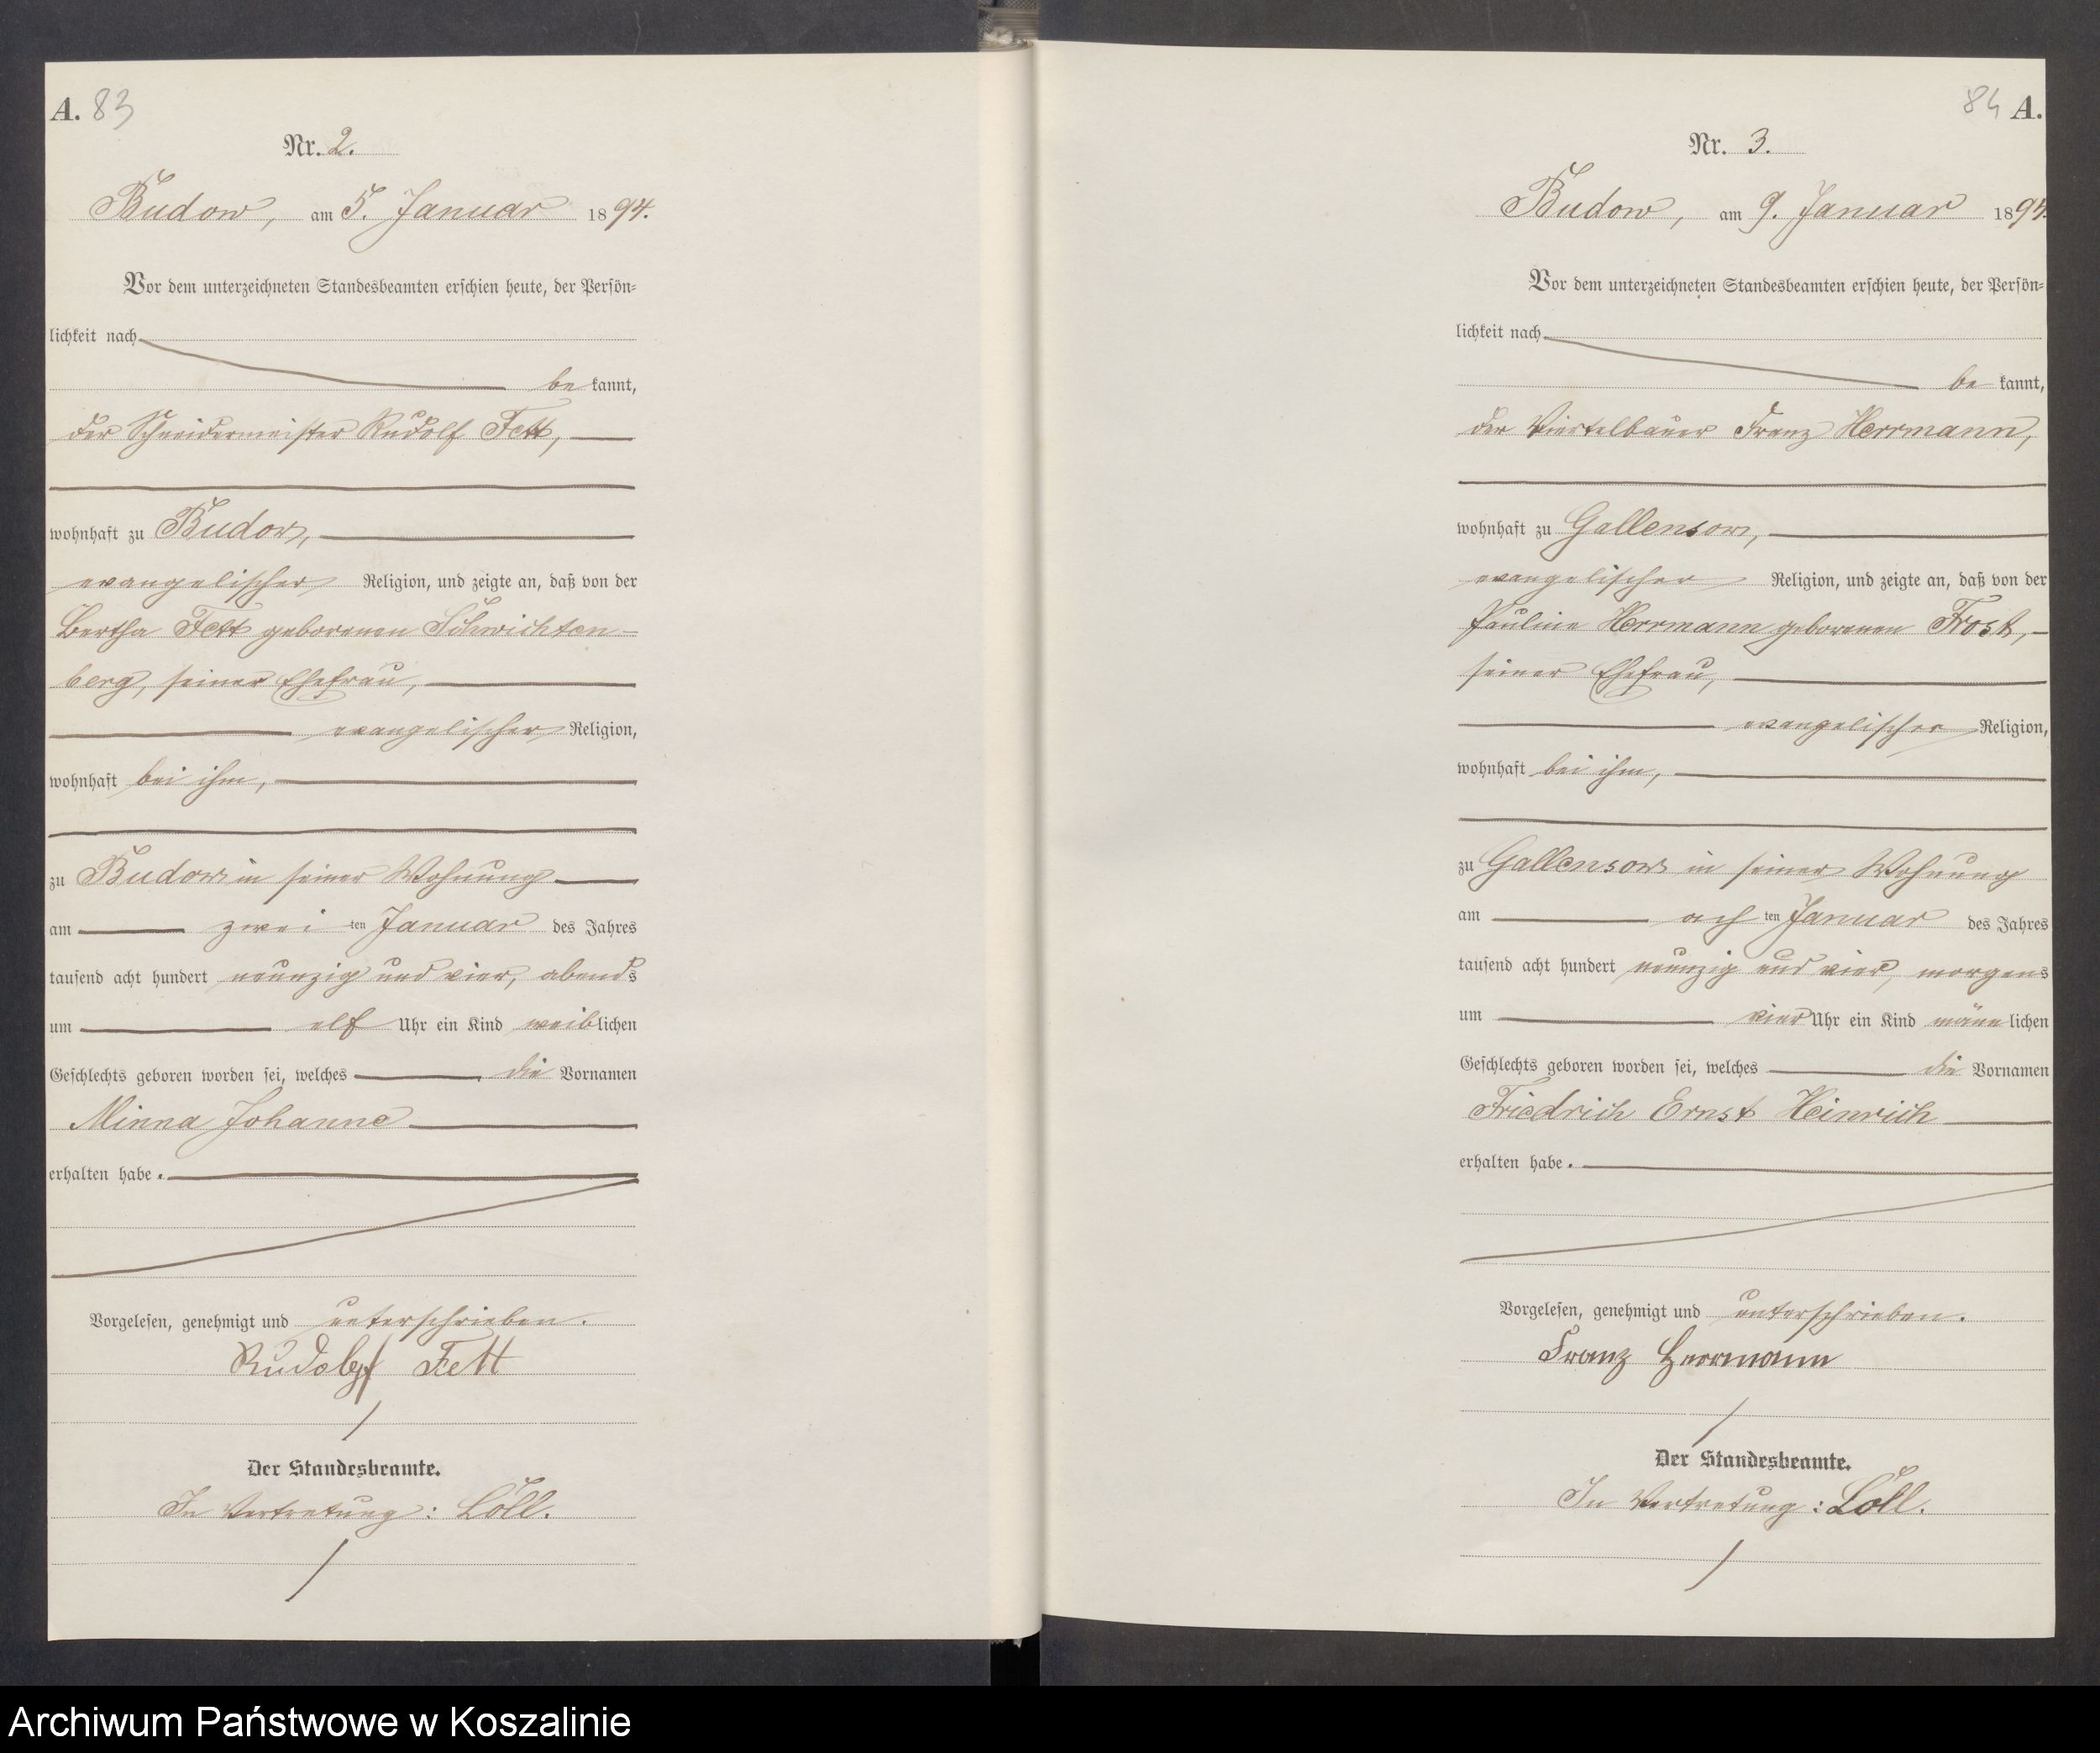 A. 83
Nr. 2.
Budow, am 5. Januar 1894.
Vor dem unterzeichneten Standesbeamten erschien heute, der Persön-
lichkeit nach
be kannt,
der Schneidermeister Rudolf Fett,
wohnhaft zu Budow,
evangelischer Religion, und zeigte an, daß von der
Bertha Fett geborenen Schwichten-
berg, seiner Ehefrau,
evangelischer Religion,
wohnhaft bei ihm,
zu Budow in seiner Wohnung
am zwei ten Januar des Jahres
tausend acht hundert neunzig und vier, abends
um elf Uhr ein Kind weiblichen
Geschlechts geboren worden sei, welches die Vornamen
Minna Johanne
erhalten habe.
Vorgelesen, genehmigt und unterschrieben.
Rudolf Fett
Der Standesbeamte.
In Vertretung: Löll.
84 A.
Nr. 3.
Budow, am 9. Januar 1894.
Vor dem unterzeichneten Standesbeamten erschien heute, der Persön-
lichkeit nach
be kannt,
der Viertelbauer Franz Herrmann,
wohnhaft zu Gallensow,
evangelischer Religion, und zeigte an, daß von der
Pauline Herrmann geborenen Frost,
seiner Ehefrau,
evangelischer Religion,
wohnhaft bei ihm,
zu Gallensow in seiner Wohnung
am ach ten Januar des Jahres
tausend acht hundert neunzig und vier, morgens
um vier Uhr ein Kind männlichen
Geschlechts geboren worden sei, welches die Vornamen
Friedrich Ernst Heinrich
erhalten habe.
Vorgelesen, genehmigt und unterschrieben.
Franz Herrmann
Der Standesbeamte.
In Vertretung: Löll.
Archiwum Państwowe w Koszalinie